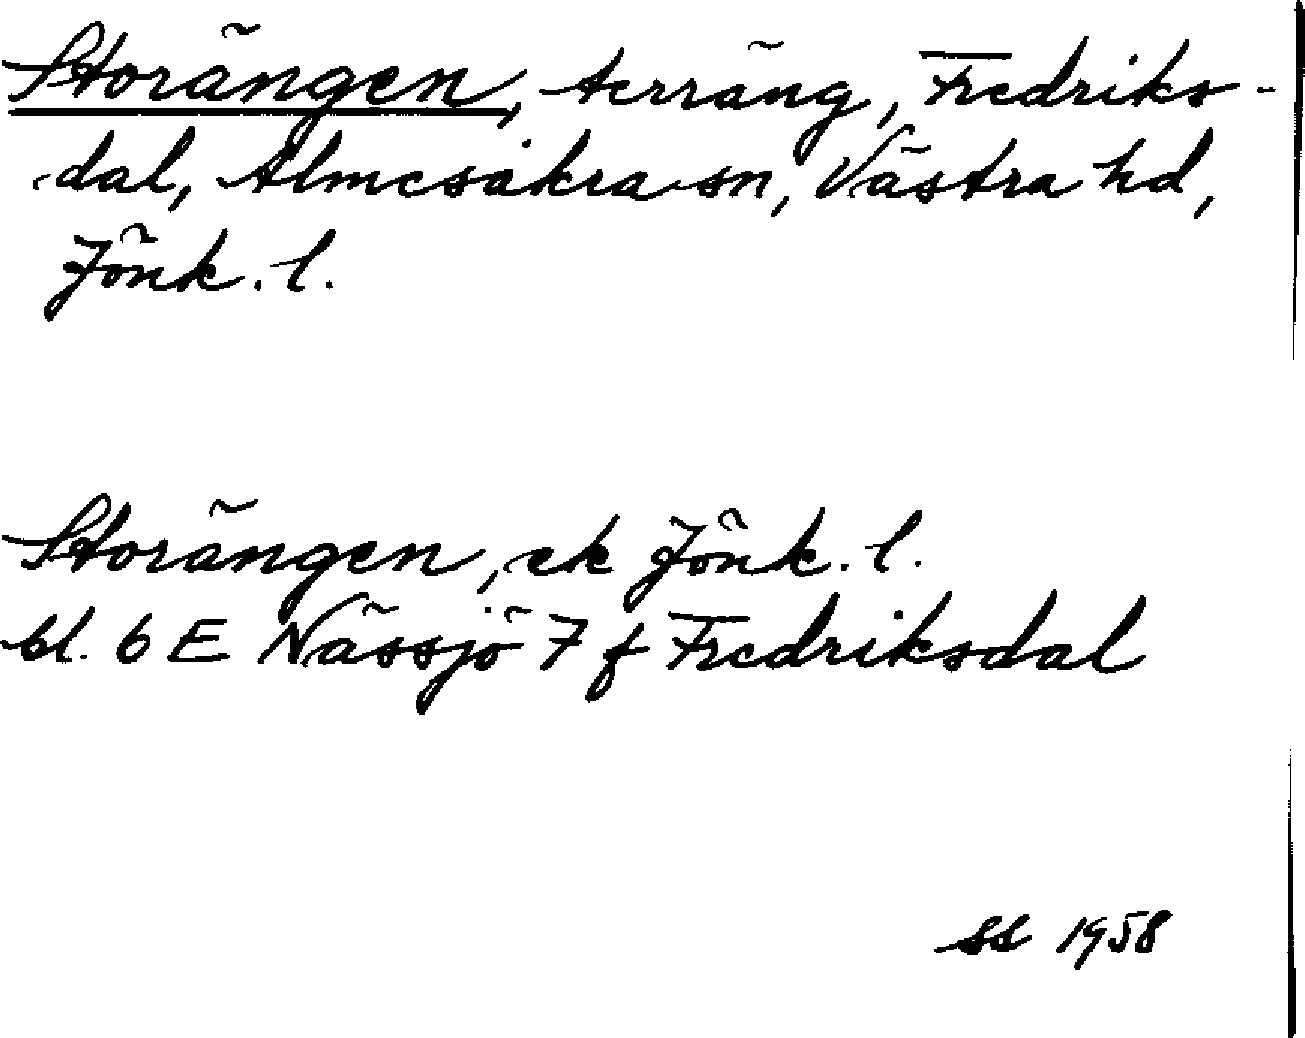 Storängen, terräng, Fredriks-
dal, Almesåkra sn, Västra hd,
Jönk. l.
Storängen, ek Jönk. l.
bl. 6 E Nässjö 7 f Fredriksdal
SS 1958